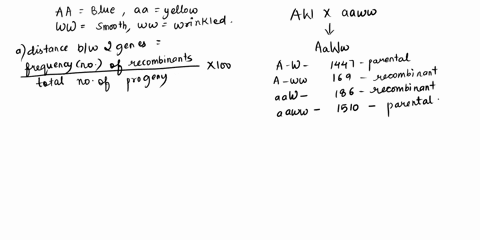 AA = Blue, aa = yellow
WW = smooth, ww = wrinkled.
a) distance b/w 2 genes =
frequency (no.) of recombinants X100
total no. of progeny
AW X aaww
↓
AaWw
A-W- 1447 - parental
A-ww 169 - recombinant
aaW- 186 - recombinant
aaww - 1510 - parental.